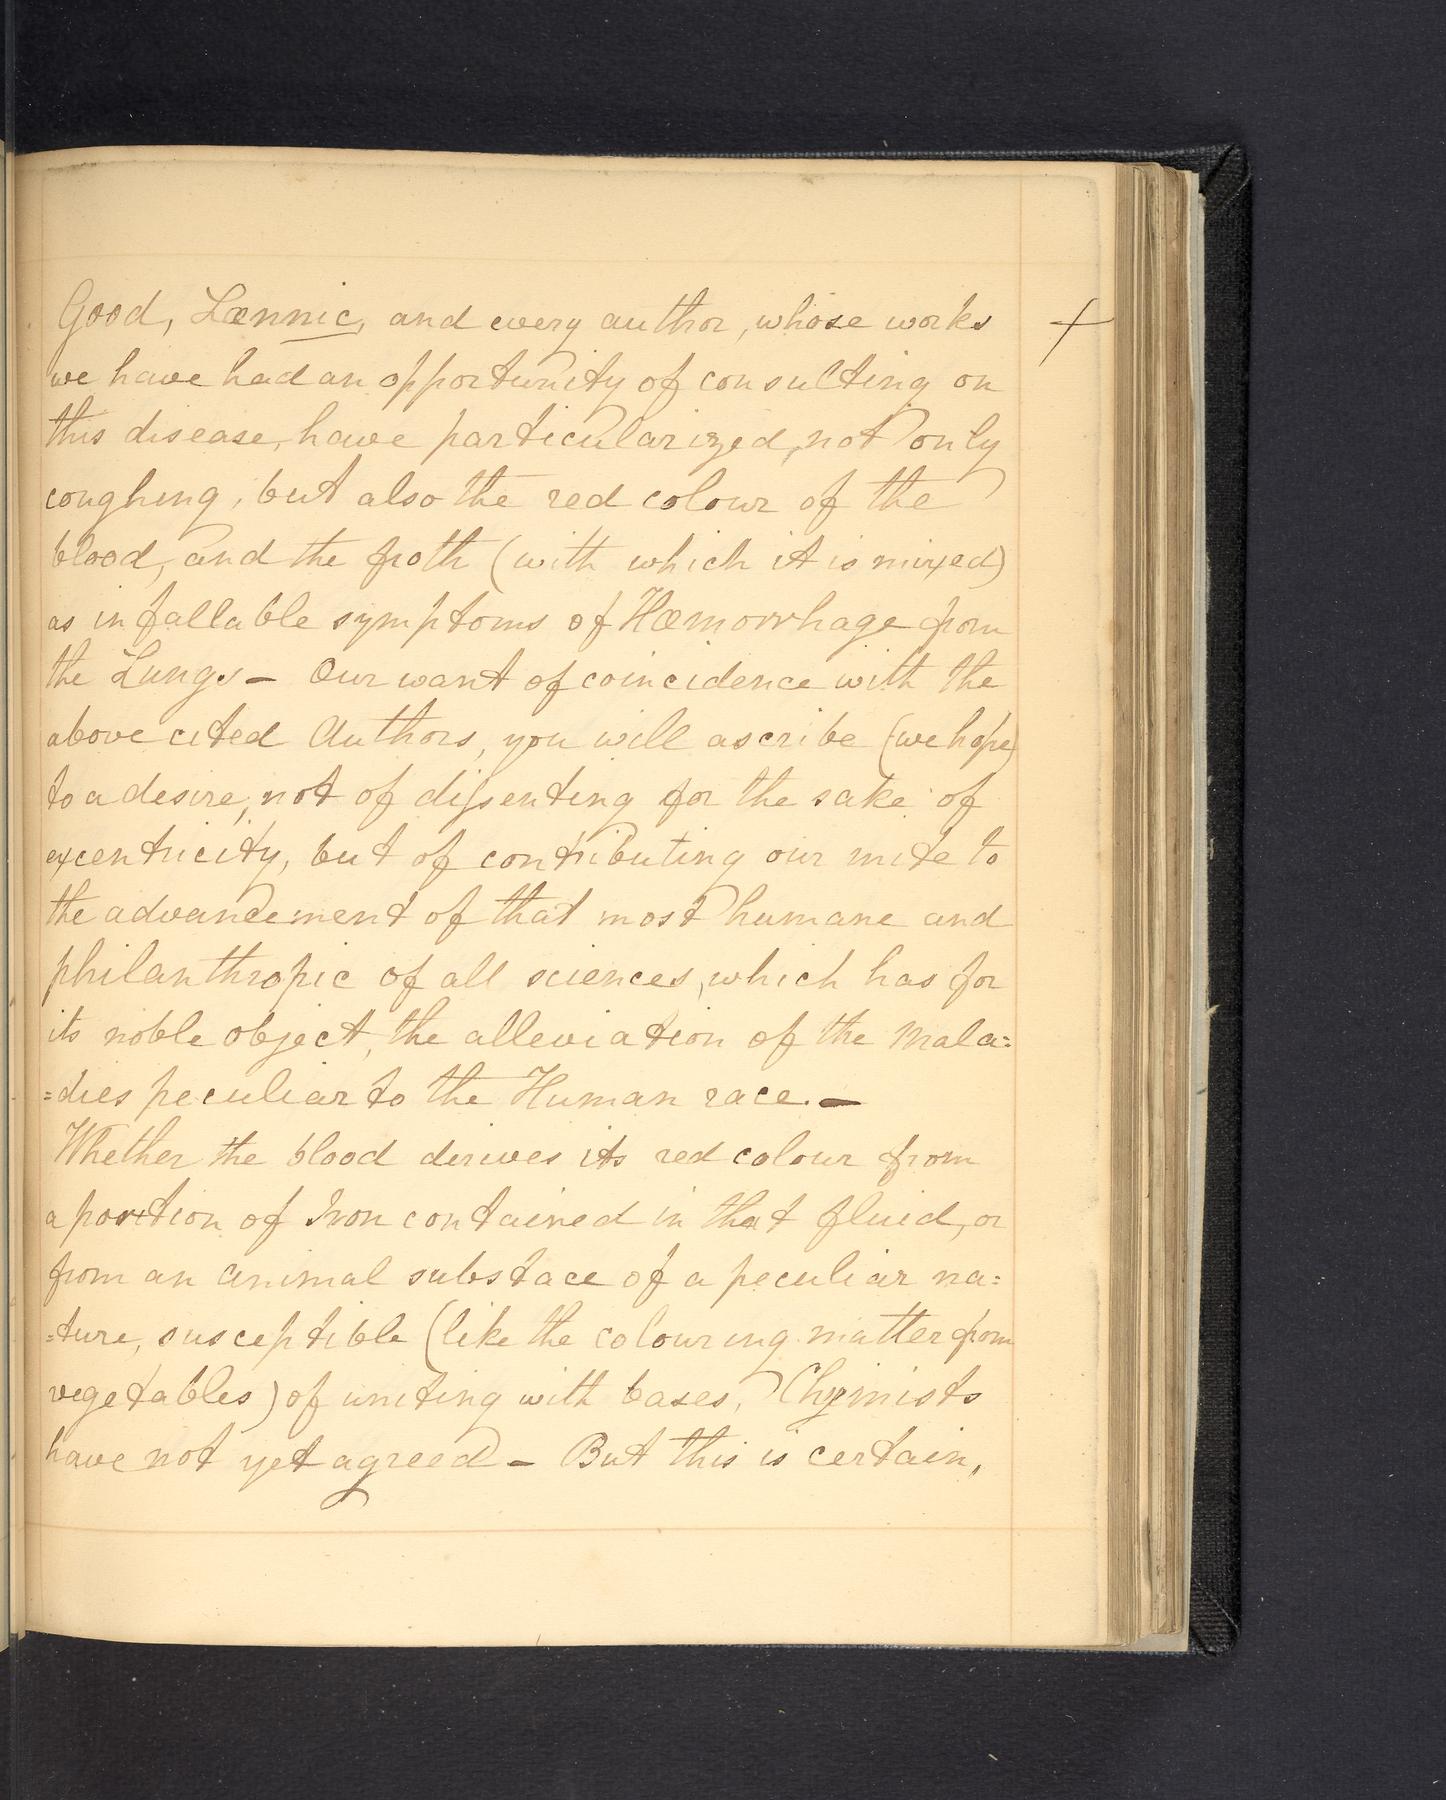 Good, Lænnic, and every author, whose works +
we have had an opportunity of consulting on
this disease, have particularized, not only
coughing, but also the red colour of the
blood, and the froth (with which it is mixed)
as infallable symptoms of Hæmorrhage from
the Lungs – Our want of coincidence with the
above cited Authors, you will ascribe (we hope)
to a desire, not of dissenting for the sake of
excentricity, but of contributing our mite to
the advancement of that most humane and
philanthropic of all sciences, which has for
its noble object, the alleviation of the Mala=
=dies peculiar to the Human race. –
Whether the blood derives its red colour from
a portion of Iron contained in that fluid, or
from an animal substace of a peculiar na=
=ture, susceptible (like the colouring matter from
vegetables) of uniting with bases, Chymists
have not yet agreed – But this is certain,